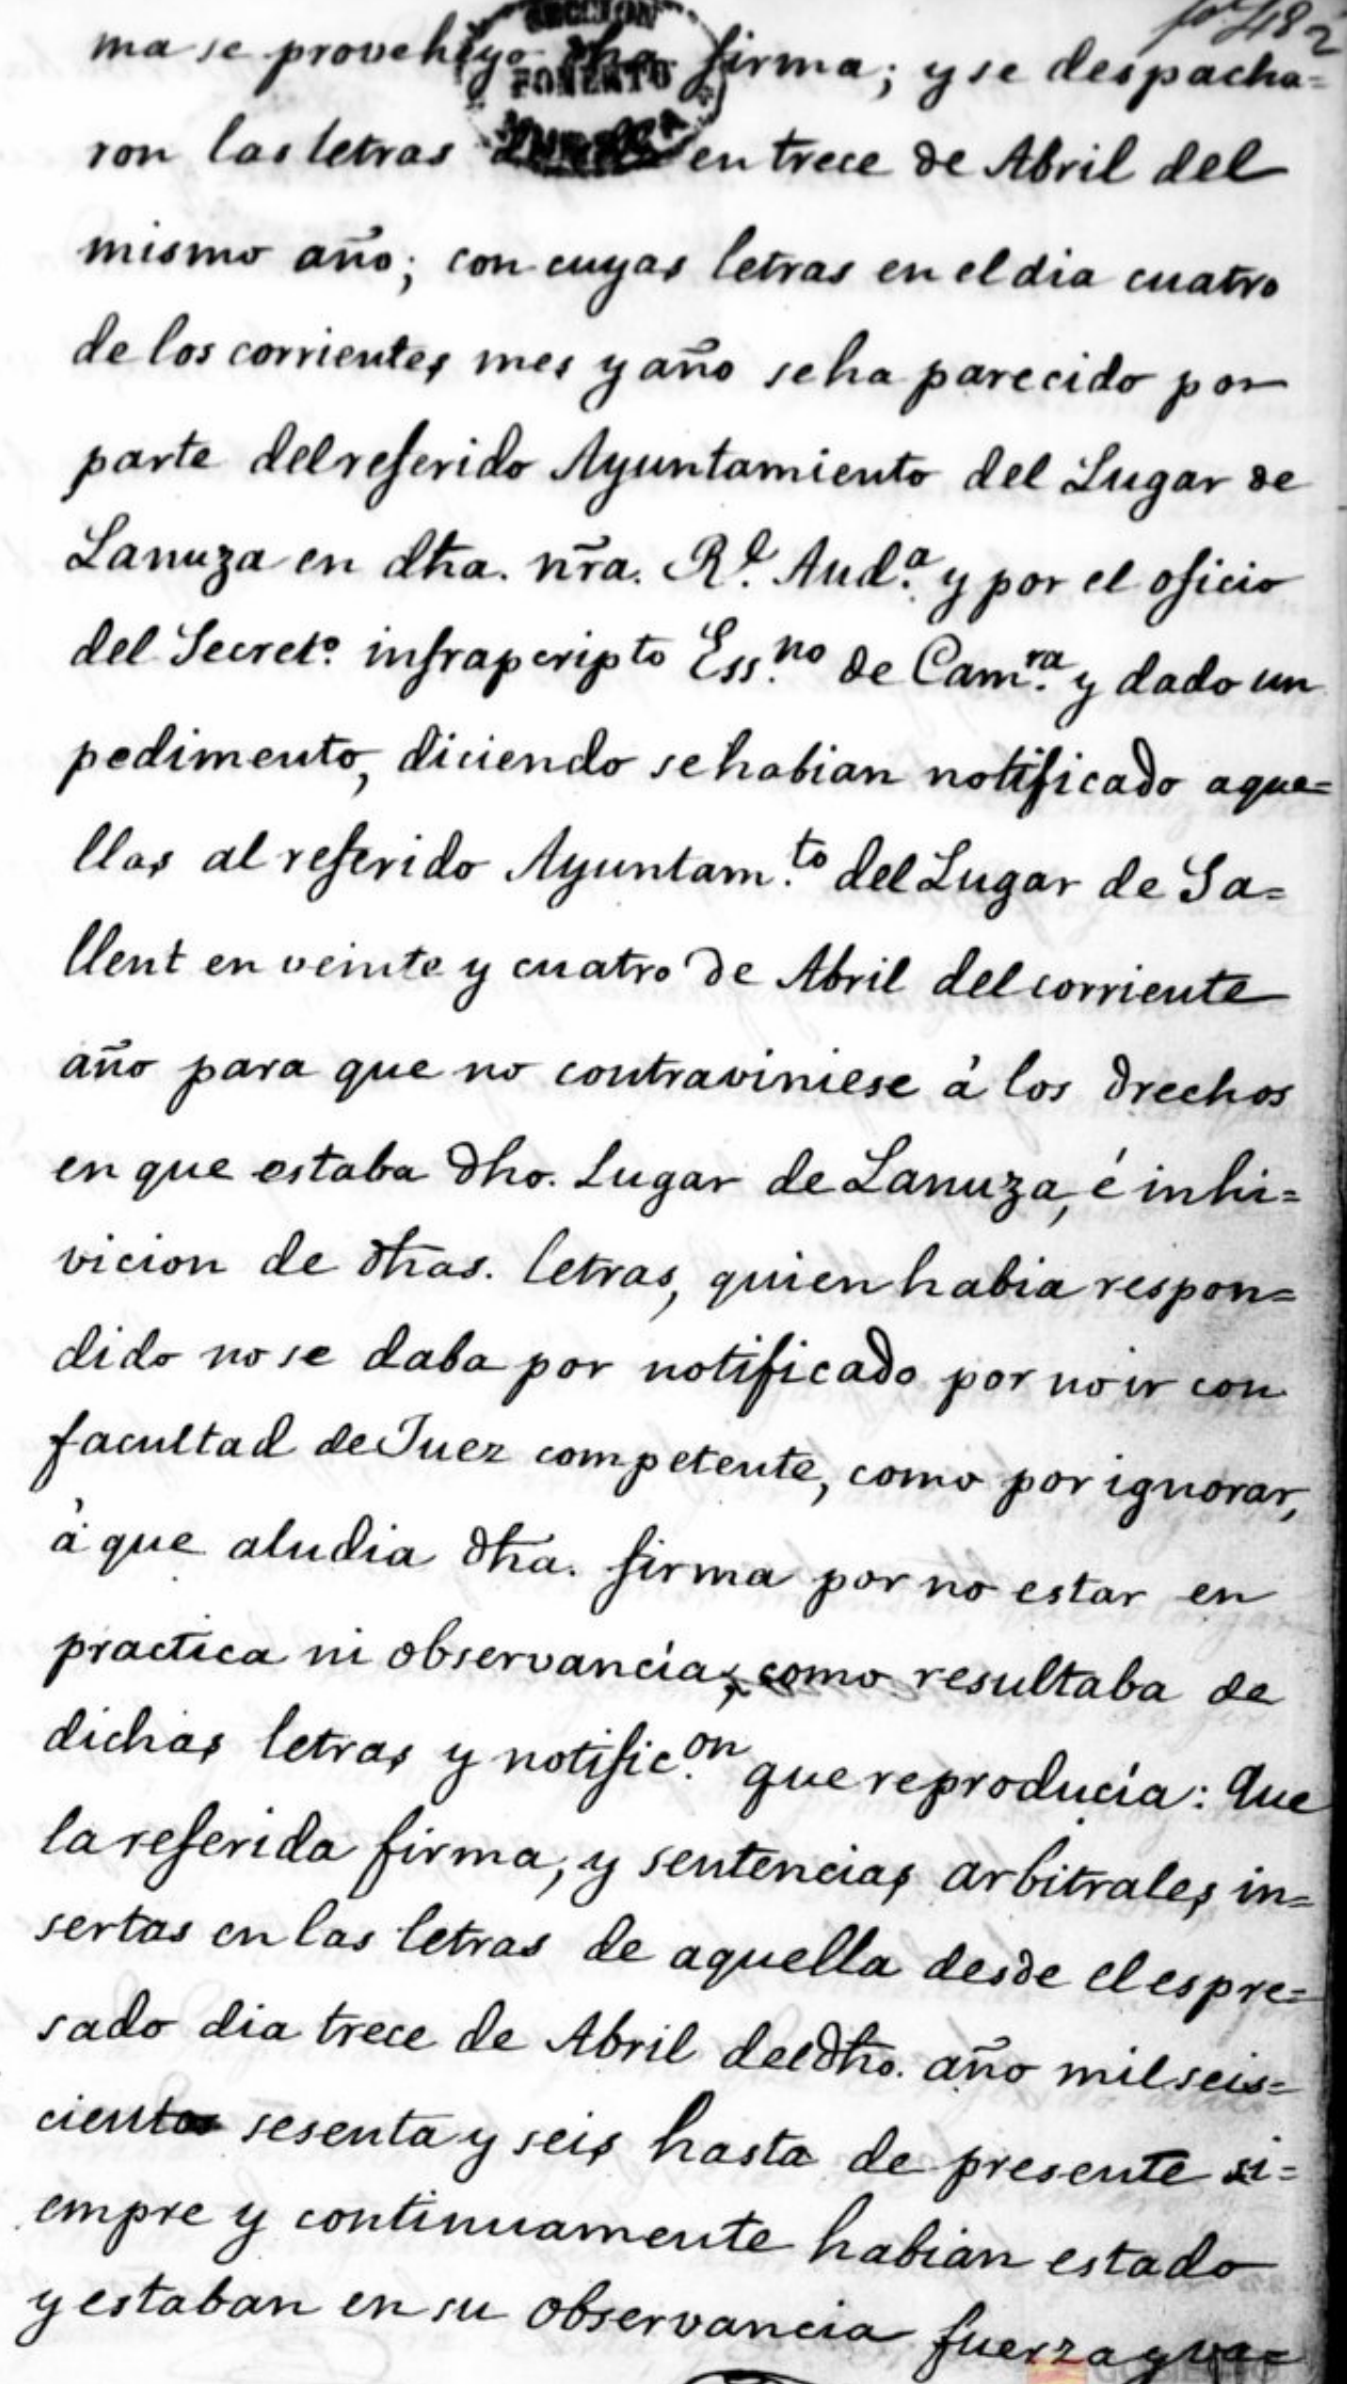 fo. 482
ma se provehyo dha firma; y se despacha=
ron las letras en trece de Abril del
mismo año; con cuyas letras en el dia cuatro
de los corrientes mes y año se ha parecido por
parte del referido Ayuntamiento del Lugar de
Lanuza en dha. nra. Rl. Auda. y por el oficio
del Secreto. infrascripto Essno. de Camra. y dado un
pedimento, diciendo se habian notificado aque=
llas al referido Ayuntamto. del Lugar de Sa=
llent en veinte y cuatro de Abril del corriente
año para que no contraviniese á los drechos
en que estaba dho. Lugar de Lanuza, é inhi=
vicion de dhas. letras, quien habia respon=
dido no se daba por notificado por no ir con
facultad de Juez competente, como por ignorar,
á que aludia dha. firma por no estar en
practica ni observancia, como resultaba de
dichas letras y notificon. que reproducía: Que
la referida firma, y sentencias arbitrales in=
sertas en las letras de aquella desde el espre=
sado dia trece de Abril del dho. año mil seis=
cientos sesenta y seis hasta de presente si=
empre y continuamente habian estado
y estaban en su observancia fuerza y va=